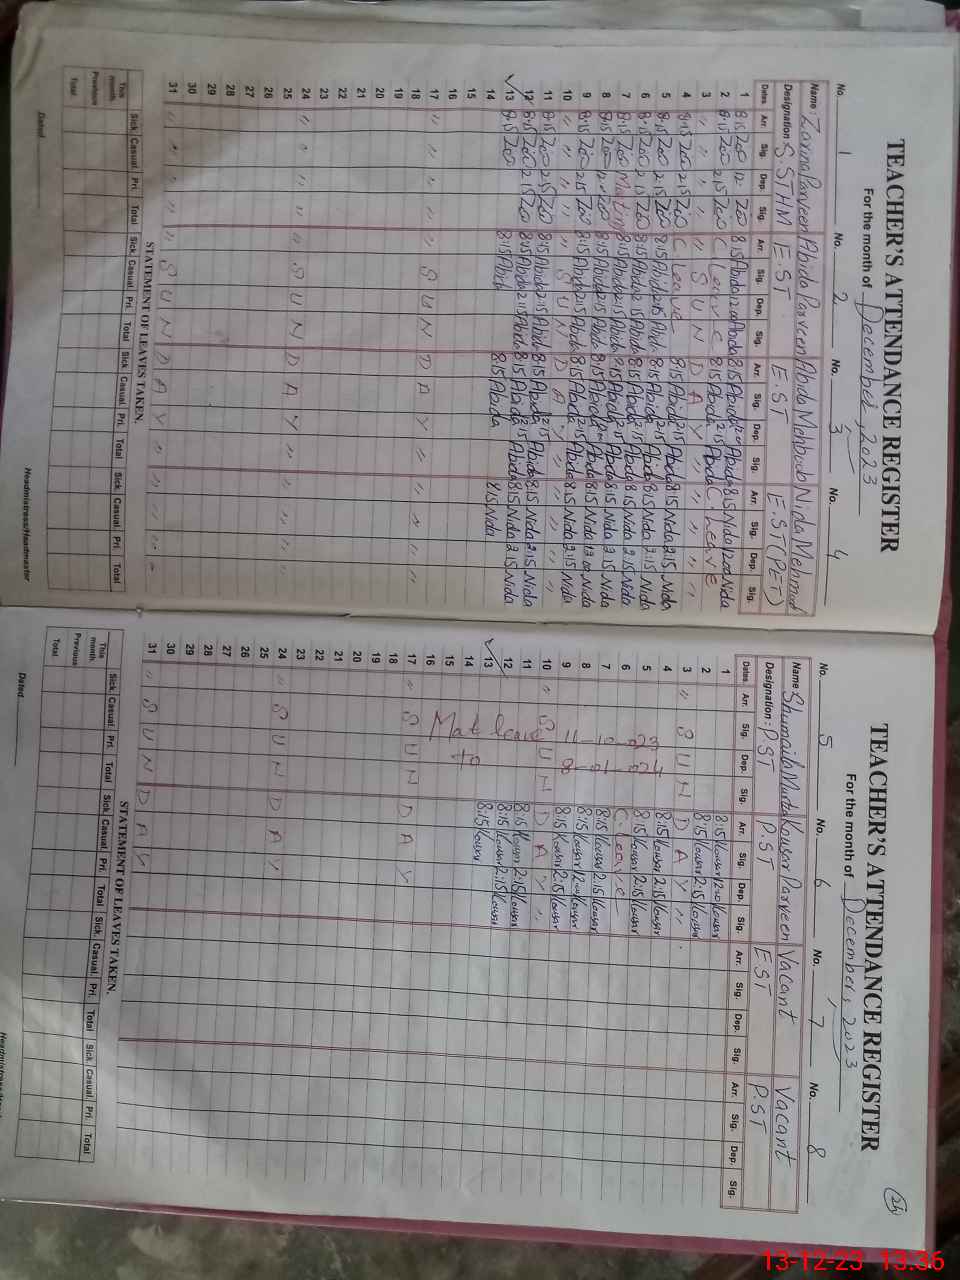 TEACHER'S ATTENDANCE REGISTER
For the month of December, 2023
No. 1 No. 2 No. 3 No. 4
Name: Zarina Parveen Abida Parveen Abida Mehboob Nida Mehmood
Designation: S.STHM E.ST E.ST E.ST(PET)
Dates Arr. Sig. Dep. Sig. Arr. Sig. Dep. Sig. Arr. Sig. Dep. Sig. Arr. Sig. Dep. Sig.
1 8:15 Zoo 12 Zoo 8:15 Abida 12:00 Abida 8:15 Abida Abida 8:15 Nida 12:00 Nida
2 8:15 Zoo 2:15 Zoo C Leave 8:15 Abida 2:15 Abida C. Leave
3 " " " " S U N D A Y " " " "
4 8:15 Zoo 2:15 Zoo C. Leave 8:15 Abida 2:15 Abida 8:15 Nida 2:15 Nida
5 8:15 Zoo 2:15 Zoo 8:15 Abida 2:15 Abida 8:15 Abida 2:15 Abida 8:15 Nida 2:15 Nida
6 8:15 Zoo 2:15 Zoo 8:15 Abida 2:15 Abida 8:15 Abida 2:15 Abida 8:15 Nida 2:15 Nida
7 8:15 Zoo 8:15 Abida 2:15 Abida 8:15 Abida 2:15 Abida 8:15 Nida 2:15 Nida
8 8:15 Zoo 12:00 Zoo 8:15 Abida Abida 8:15 Abida Abida 8:15 Nida 12:00 Nida
9 8:15 Zoo 2:15 Zoo 8:15 Abida 2:15 Abida 8:15 Abida 2:15 Abida 8:15 Nida 2:15 Nida
10 " " " " S U N D A Y " " " "
11 8:15 Zoo 2:15 Zoo 8:15 Abida 2:15 Abida 8:15 Abida 2:15 Abida 8:15 Nida 2:15 Nida
12 8:15 Zoo 2:15 Zoo 8:15 Abida 2:15 Abida 8:15 Abida 2:15 Abida 8:15 Nida 2:15 Nida
13 8:15 Zoo 8:15 Abida 8:15 Abida 8:15 Nida
14
15
16
17 " " " " " S U N D A Y " " " "
18
19
20
21
22
23
24 " " " " " S U N D A Y " " " "
25
26
27
28
29
30
31 " " " " " S U N D A Y " " " "
STATEMENT OF LEAVES TAKEN.
Sick. Casual. Pri. Total Sick. Casual. Pri. Total Sick. Casual. Pri. Total Sick. Casual. Pri. Total
This month
Previous
Total
Dated
Headmistress/Headmaster
24
TEACHER'S ATTENDANCE REGISTER
For the month of December, 2023
No. 5 No. 6 No. 7 No. 8
Name Shumaila Kousar Parveen Vacant Vacant
Designation: P.ST P.ST EST P.ST
Dates Arr. Sig. Dep. Sig. Arr. Sig. Dep. Sig. Arr. Sig. Dep. Sig. Arr. Sig. Dep. Sig.
1 8:15 Kousar 12:00 Kousar
2 8:15 Kousar 2:15 Kousar
3 " S U N D A Y "
4 8:15 Kousar 2:15 Kousar
5 8:15 Kousar 2:15 Kousar
6 C. Leave
7 8:15 Kousar 2:15 Kousar
8 8:15 Kousar 12:00 Kousar
9 8:15 Kousar 2:15 Kousar
10 " S U N D A Y "
11 8:15 Kousar 2:15 Kousar
12 8:15 Kousar 2:15 Kousar
13 8:15 Kousar
Mat leave 11-10-023
to 8-01-024
14
15
16
17 " S U N D A Y
18
19
20
21
22
23
24 " S U N D A Y
25
26
27
28
29
30
31 " S U N D A Y
STATEMENT OF LEAVES TAKEN.
Sick. Casual. Pri. Total Sick. Casual. Pri. Total Sick. Casual. Pri. Total Sick. Casual. Pri. Total
This month
Previous
Total
Dated
13-12-23 13:36